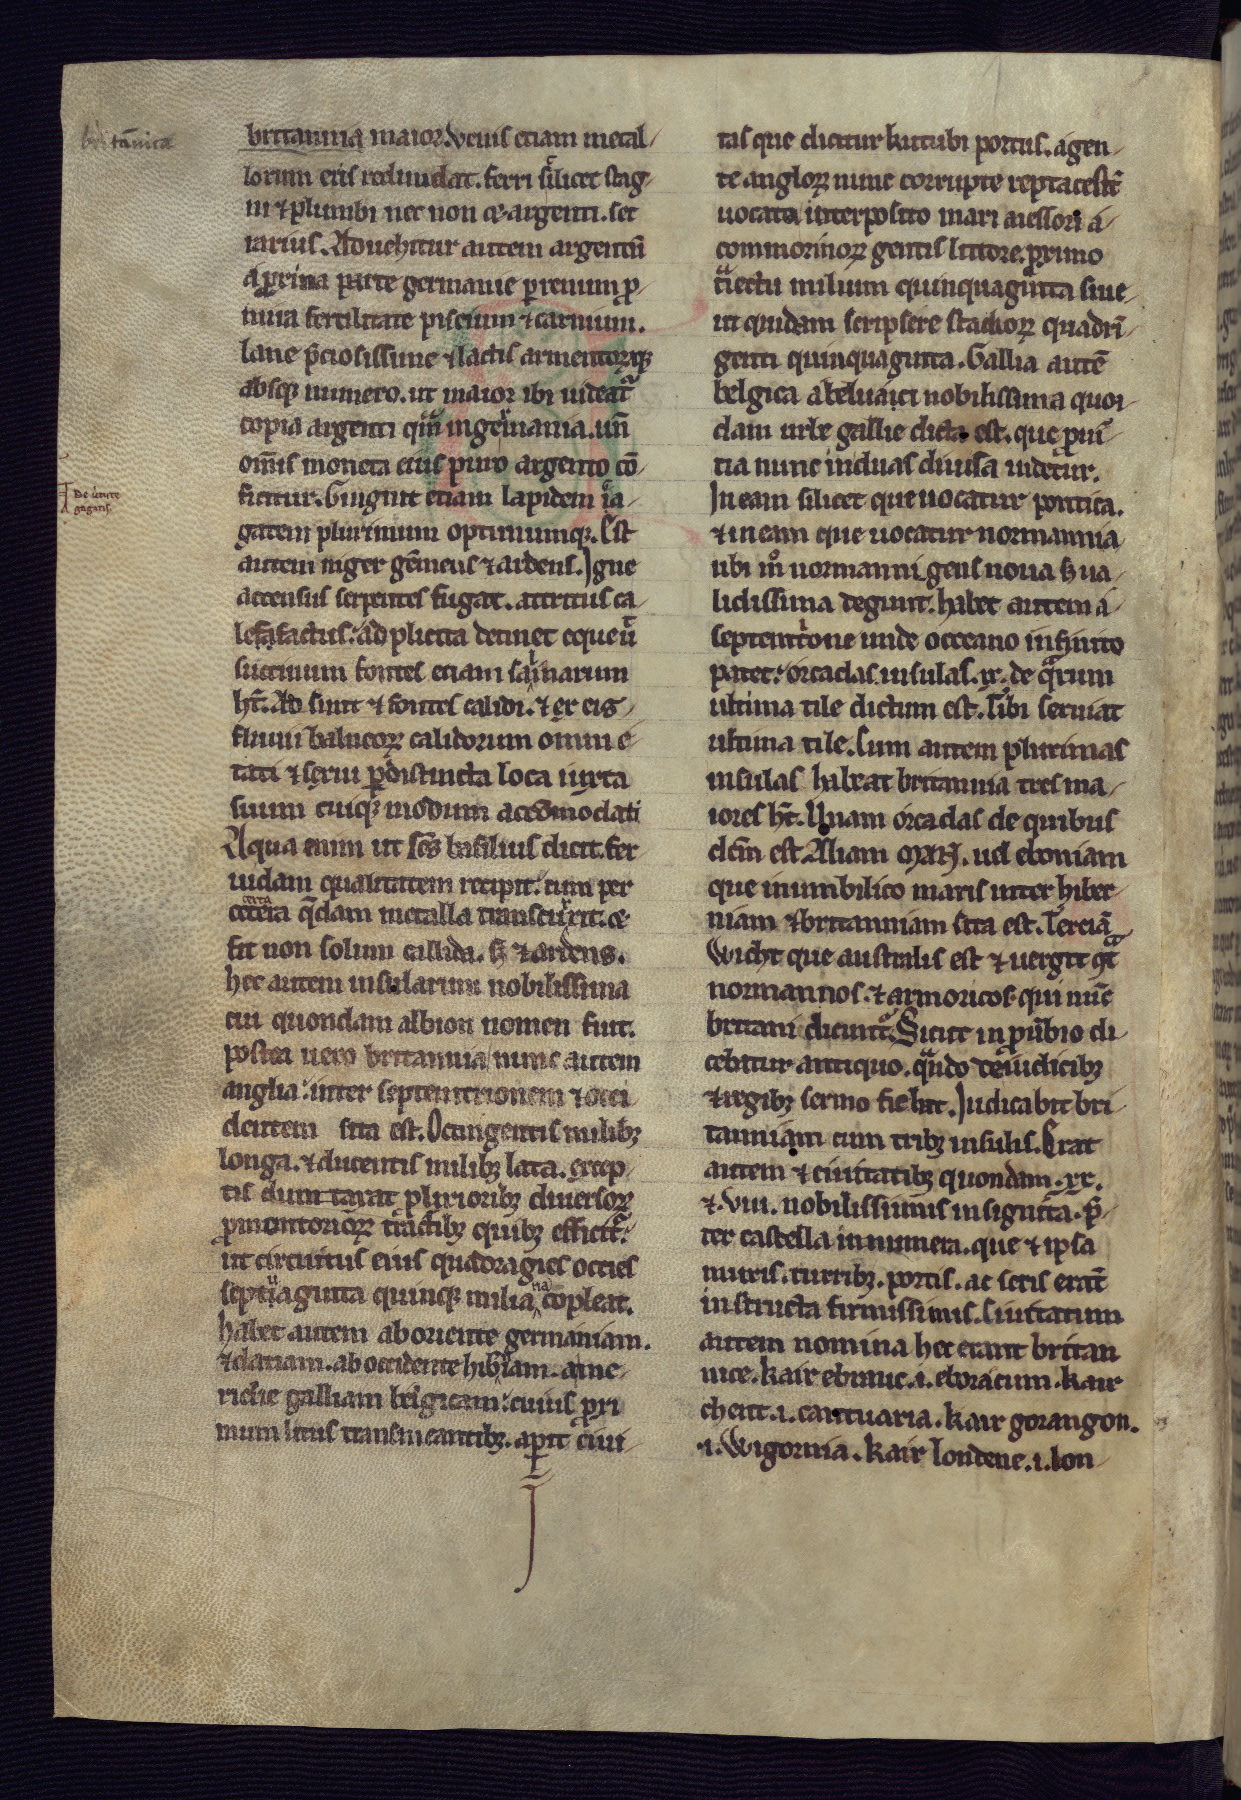 britannia
britannia maior. Venis etiam metal-
lorum eris redundat. ferri scilicet stag-
ni & plumbi nec non & argenti. set
rarius. Aduehitur autem argentū
a prima parte germanie per renum p̱
tinia fertilitate pisciū & carnium.
lane p̄ciosissime & lactis armentorūq;
absq; numero. ut maior ibi uideat᷑
copia argenti qm̄ ingermania. un̄
om̄is moneta eius puro argento cō-
ficitur. Gingnit etiam lapidem ga-
gatem plurimum optimumq;. Est
De uirtute
gagatis.
autem niger gēmeus & ardens. Igne
accensus serpentes fugat. attritus ca-
lefactus: adplicita detinet eque ū
succinum fontes etiam salinarum
ht̄. Ad sunt & fontes calidi. & ex eis
fluuii balneoꝝ calidorum omni e-
tati & sexui p̱ distincta loca iuxta
suum cuiq; modum accōmodati
Aqua enim ut sc̄s basilius dicit. fer-
uidam qualitatem recipit: cum per
certa
cetera q̄dam metalla transcurrit. &
fit non solum callida. s; & ardens.
hec autem insularum nobilissima
cui quondam albion nomen fuit.
postea uero britannia/ nunc autem
anglia: inter septemtrionem & occi
dentem sita est. Octingentis milib;
longa. & ducentis milib; lata. excep-
tis dum taxat plixiorib; diuersoꝝ
p̱montorioꝝ tractib; quib; efficit᷑:
ut circuitus eius quadragies octies
septuaginta quinq; milia cōpleat.
habet autem ab oriente germaniam.
& daciam. ab occidente hib̄niam. a me-
ridie galliam belgicam: cuius p̱xi
mum litus transmeantib;. apit ciui-
tas que dicitur kutubi portus. a gen-
te angloꝝ nunc corrupte reptacestr̄
uocata interposito mari a iessori a-
commorinoꝝ gentis littore. p̱ximo
t̄iectu milium quinquaginta siue-
ut quidam scripsere stadioꝝ quadrī-
genti quinquaginta. Gallia autē
belgica a beluaici nobilissima quon-
dam urbe gallie dicta est. que p̱uī-
tia nunc induas diuisa uidetur.
In eam silicet que uocatur pontica.
& in eam que uocatur normannia
ubi m̊ normanni gens noua s; ua-
lidissima degunt. habet autem a-
septemtrione unde occeano infinito
patet: orcadas insulas. xx. de quarum
ultima tile dictum est. Tibi seruiat
ultima tile. Cum autem plurimas
insulas habeat britannia tres ma-
iores ht̄. Vnam orcadas de quibus
dcm̄ est. Aliam MAN. uel eboniam
que inumbilico maris inter hiber-
niam & britanniam sita est. Terciā
Wicht que australis est & uergit 9t̄
normannos. & armoricos. qui nūc
britani dicunt᷑. Sicut in p̱ūbio di-
cebatur antiquo. qn̄do de iudicib;
& regib; sermo fiebat. Iudicabit bri-
tanniam cum trib; insulis. Erat
autem & ciuitatib; quondam. xx.
& . viii. nobilissimis insignita. p̄-
ter castella innumera. que & ipsa
muris. turrib;. portis. ac seris erāt
instructa firmissimis. Ciuitatum
autem nomina hec erant britan
nice. kair ebrauc. i. eboracum. kair
chent. i. cantuaria. kair gorangon.
.i. Wigornia. kair londene. i. lon-